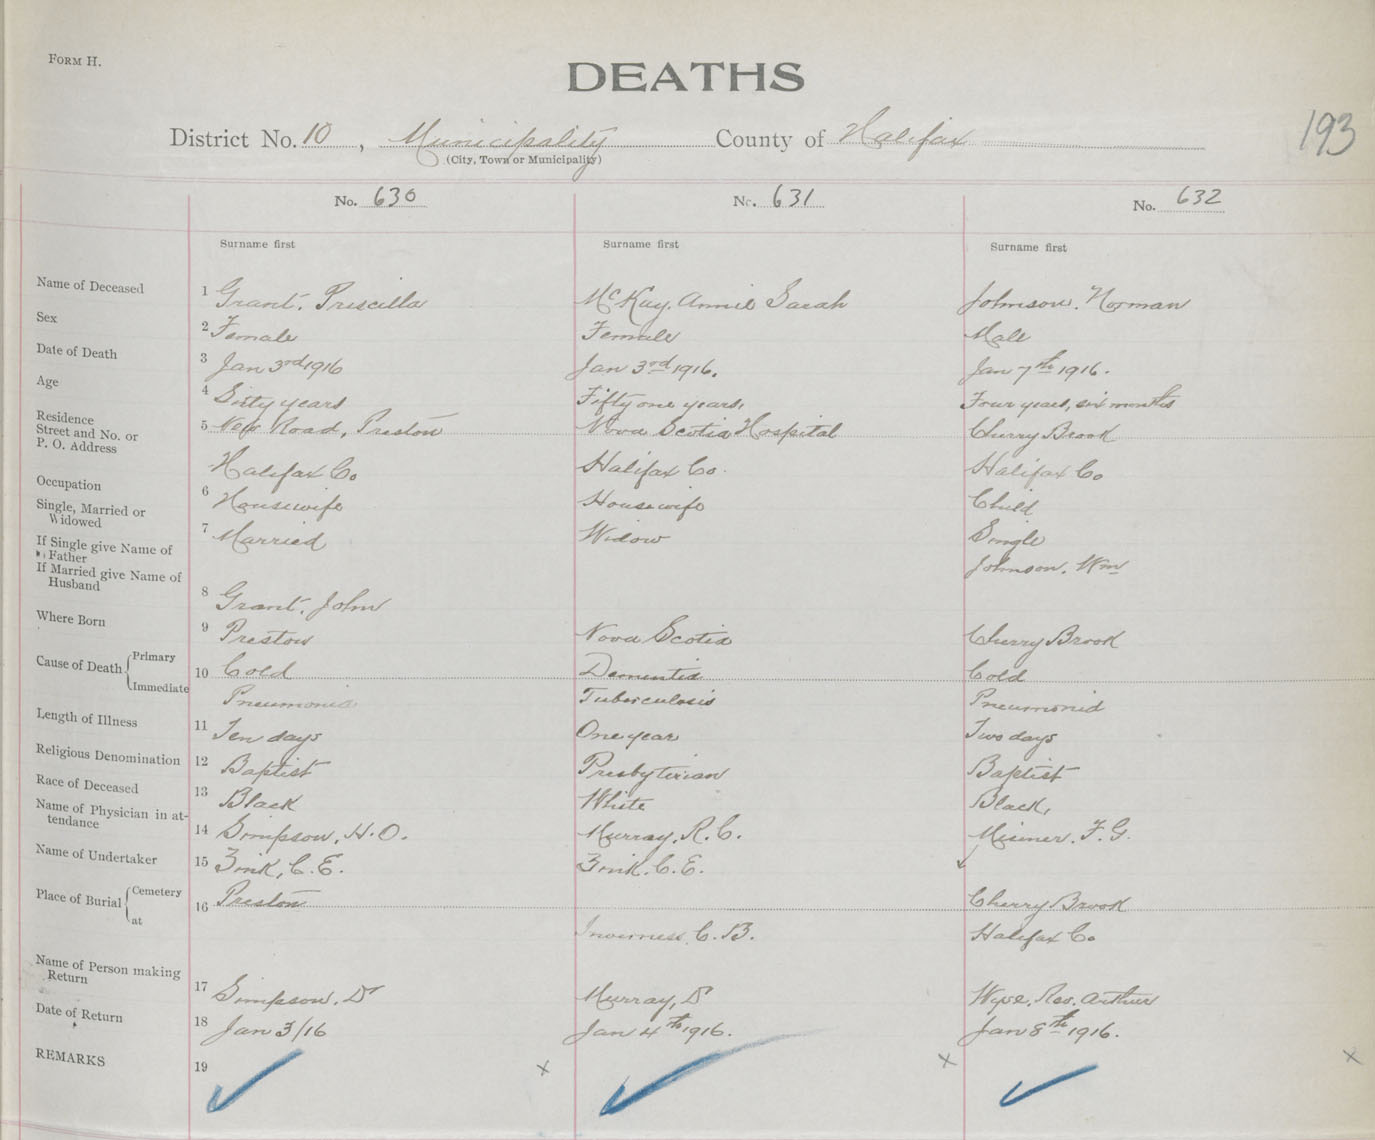 FORM H.
DEATHS
193
District No. 10, Municipality County of Halifax
(City, Town or Municipality)
No. 630 No. 631 No. 632
Surname first Surname first Surname first
Name of Deceased 1 Grant, Priscilla McKay, Annie Sarah Johnson, Norman
Sex 2 Female Female Male
Date of Death 3 Jan 3rd 1916 Jan 3rd 1916. Jan 7th 1916.
Age 4 Sixty years Fifty one years, Four years, six months
Residence
Street and No. or
P. O. Address
5 New Road, Preston Nova Scotia Hospital Cherry Brook
Halifax Co Halifax Co. Halifax Co
Occupation 6 Housewife Housewife Child
Single, Married or
Widowed
7 Married Widow Single
If Single give Name of
Father
Johnson, Wm
If Married give Name of
Husband
8 Grant, John
Where Born 9 Preston Nova Scotia Cherry Brook
Cause of Death Primary 10 Cold Dementia Cold
Immediate Pneumonia Tuberculosis Pneumonia
Length of Illness 11 Ten days One year Two days
Religious Denomination 12 Baptist Presbyterian Baptist
Race of Deceased 13 Black White Black,
Name of Physician in at-
tendance
14 Simpson, H. O. Murray, R. C. Misener, F. G.
Name of Undertaker 15 Zink, C. E. Zink, C. E.
Place of Burial Cemetery 16 Preston Cherry Brook
at Inverness, C. B. Halifax Co
Name of Person making
Return
17 Simpson, Dr Murray, Dr Wyse, Rev. Arthur
Date of Return 18 Jan 3/16 Jan 4th 1916. Jan 8th 1916.
REMARKS 19 x x x